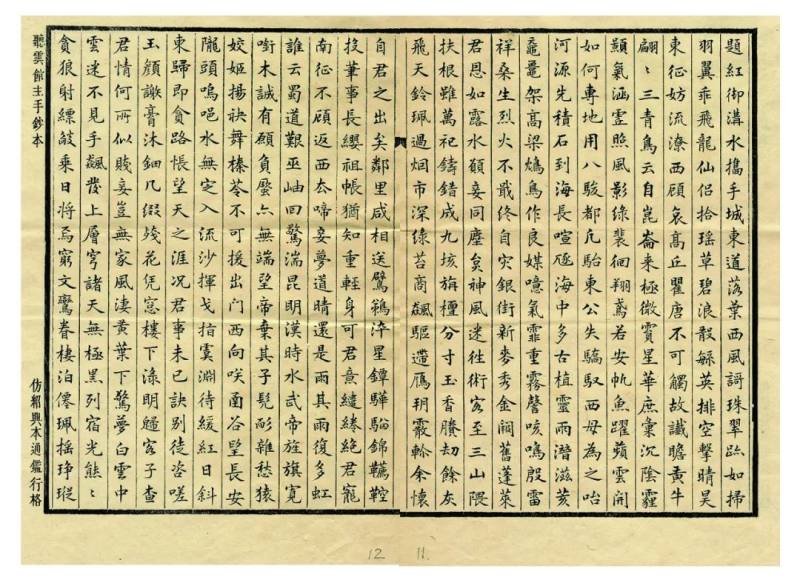 題紅御溝水攜手城東道落葉西風謌珠翠跡如掃
羽翼乖飛龍仙侶拾瑤草碧浪散繇英排空擊晴昊
東征妨流潦西顧哀高丘瞿唐不可觸故識瞻黃牛
翩〻三青鳥云自崑崙來極微賓星華庶彙沉陰霾
顥氣涵虛照風影綠裴徊翔鳶若安軌魚躍蘋雲開
如何專地用八駿都凡駘東公失驕馭西母為之咍
河源先積石到海長喧豗海中多古植靈雨潛滋荄
黿鼉架高梁鴆鳥作良媒噫氣霏重霧謦咳鳴殷雷
祥桑生烈火不戢終自灾銀街新麥秀金闕舊蓬萊
君恩如露水願妾同塵矣神風迷徃術客至三山隈
扶根雖萬祀鑄錯成九垓旃檀分寸玉香賸劫餘灰
飛天鈴珮過烟市深綠苔商飆驅遣鴈玥霰軫余懷
自君之出矣鄰里咸相送臂鷂淬星鐔驊騮錦韉鞚
投筆事長纓祖帳猶知重輕身可君意繾綣絶君寵
南征不顧返西去啼妾夢道晴還是雨其雨復多虹
誰云蜀道艱巫岫回驚湍昆明漢時水武帝旌旗寛
銜木誠有願負蜃亦無端望帝棄其子髡彨雜愁猿
姣姬揚袂舞榛苓不可援出門西向咲函谷望長安
隴頭嗚咽水無定入流沙揮戈指虞淵待緩紅日斜
東歸即貪路悵望天之涯况君事未已訣別徒咨嗟
玉顏謝膏沐鈿几綴殘花凭窓樓下淥明客子查
君情何所似賤妾豈無家風淒黄葉下驚夢白雲中
雲迷不見手飆發上層穹諸天無極黑列宿光熊〻
貪狼射縹乘日將焉窮文鸞眷棲泊僊珮搖琤瑽
聽雲館主手鈔本
仿紹興本通鑑行格
12 11.